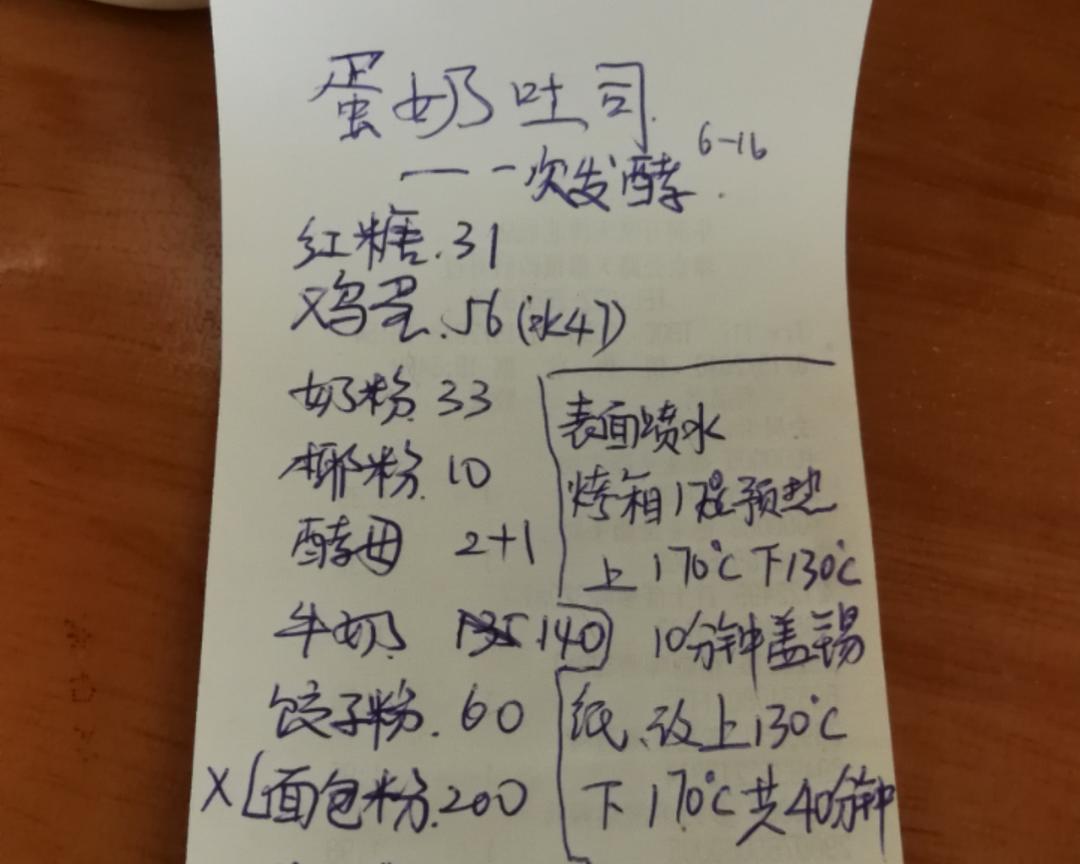 蛋奶吐司
——一次发酵 6-16
红糖.31
鸡蛋.56(水41)
奶粉 33
椰粉 10
酵母 2+1
牛奶 135 140
饺子粉.60
X[面包粉.200
表面喷水
烤箱 预热
上170℃下130℃
10分钟盖锡
纸、改上130℃
下170℃共40分钟